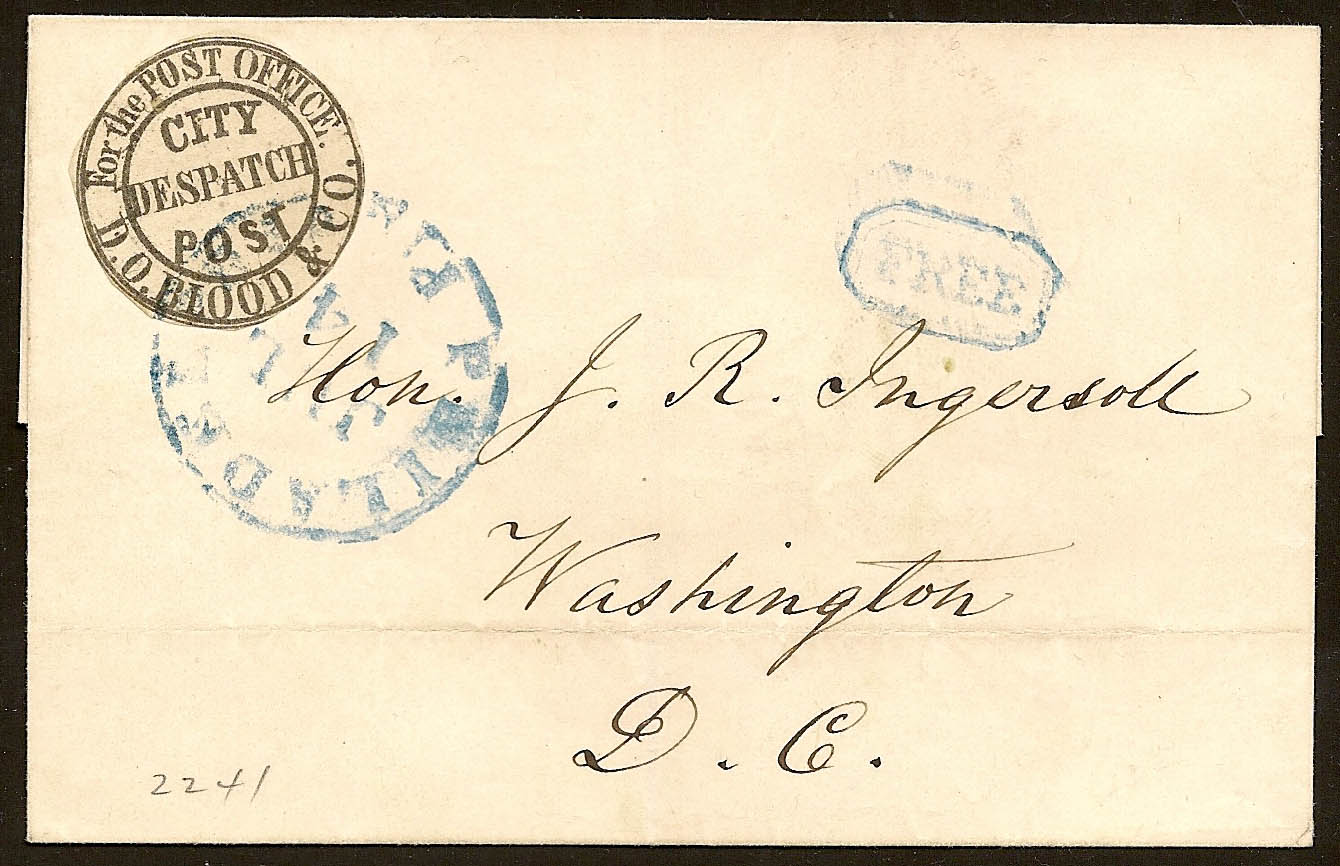 For the POST OFFICE.
CITY
DESPATCH
POST
D.O. BLOOD & CO.
FREE
Hon. J. R. Ingersoll
Washington
D. C.
2241